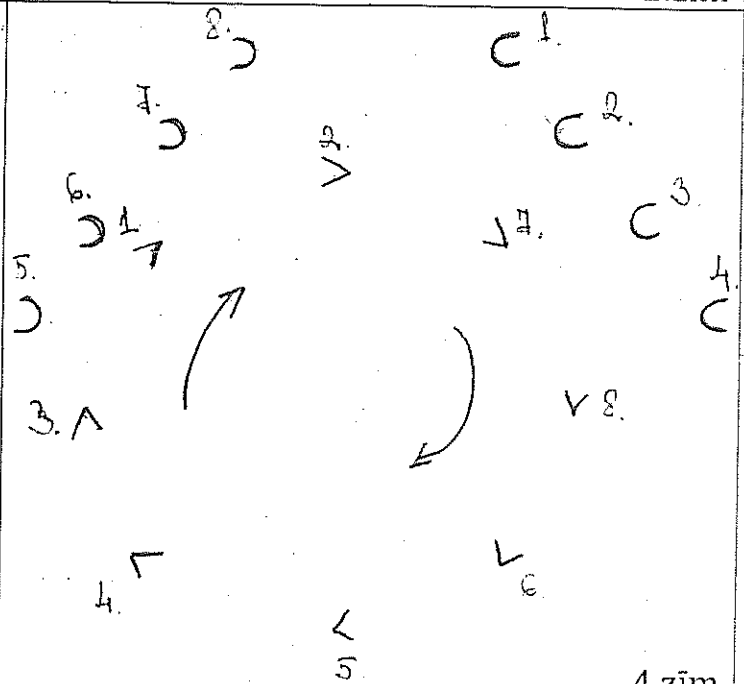 8.
1.
7.
2.
2.
6.
1.
7.
3
5.
4.
3.
8.
4.
6
5
4 zīm